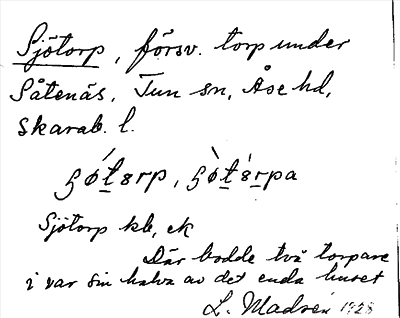 Sjötorp, försv. torp under
Såtenäs, Tun sn, Åse hd,
Skarab. l.
ʂǿt̲ɞrp, ʂø̀t̲ɞ́r̲pa
Sjötorp kb, ek
Där bodde två torpare
i var sin halva av det enda huset
L. Madsén 1928